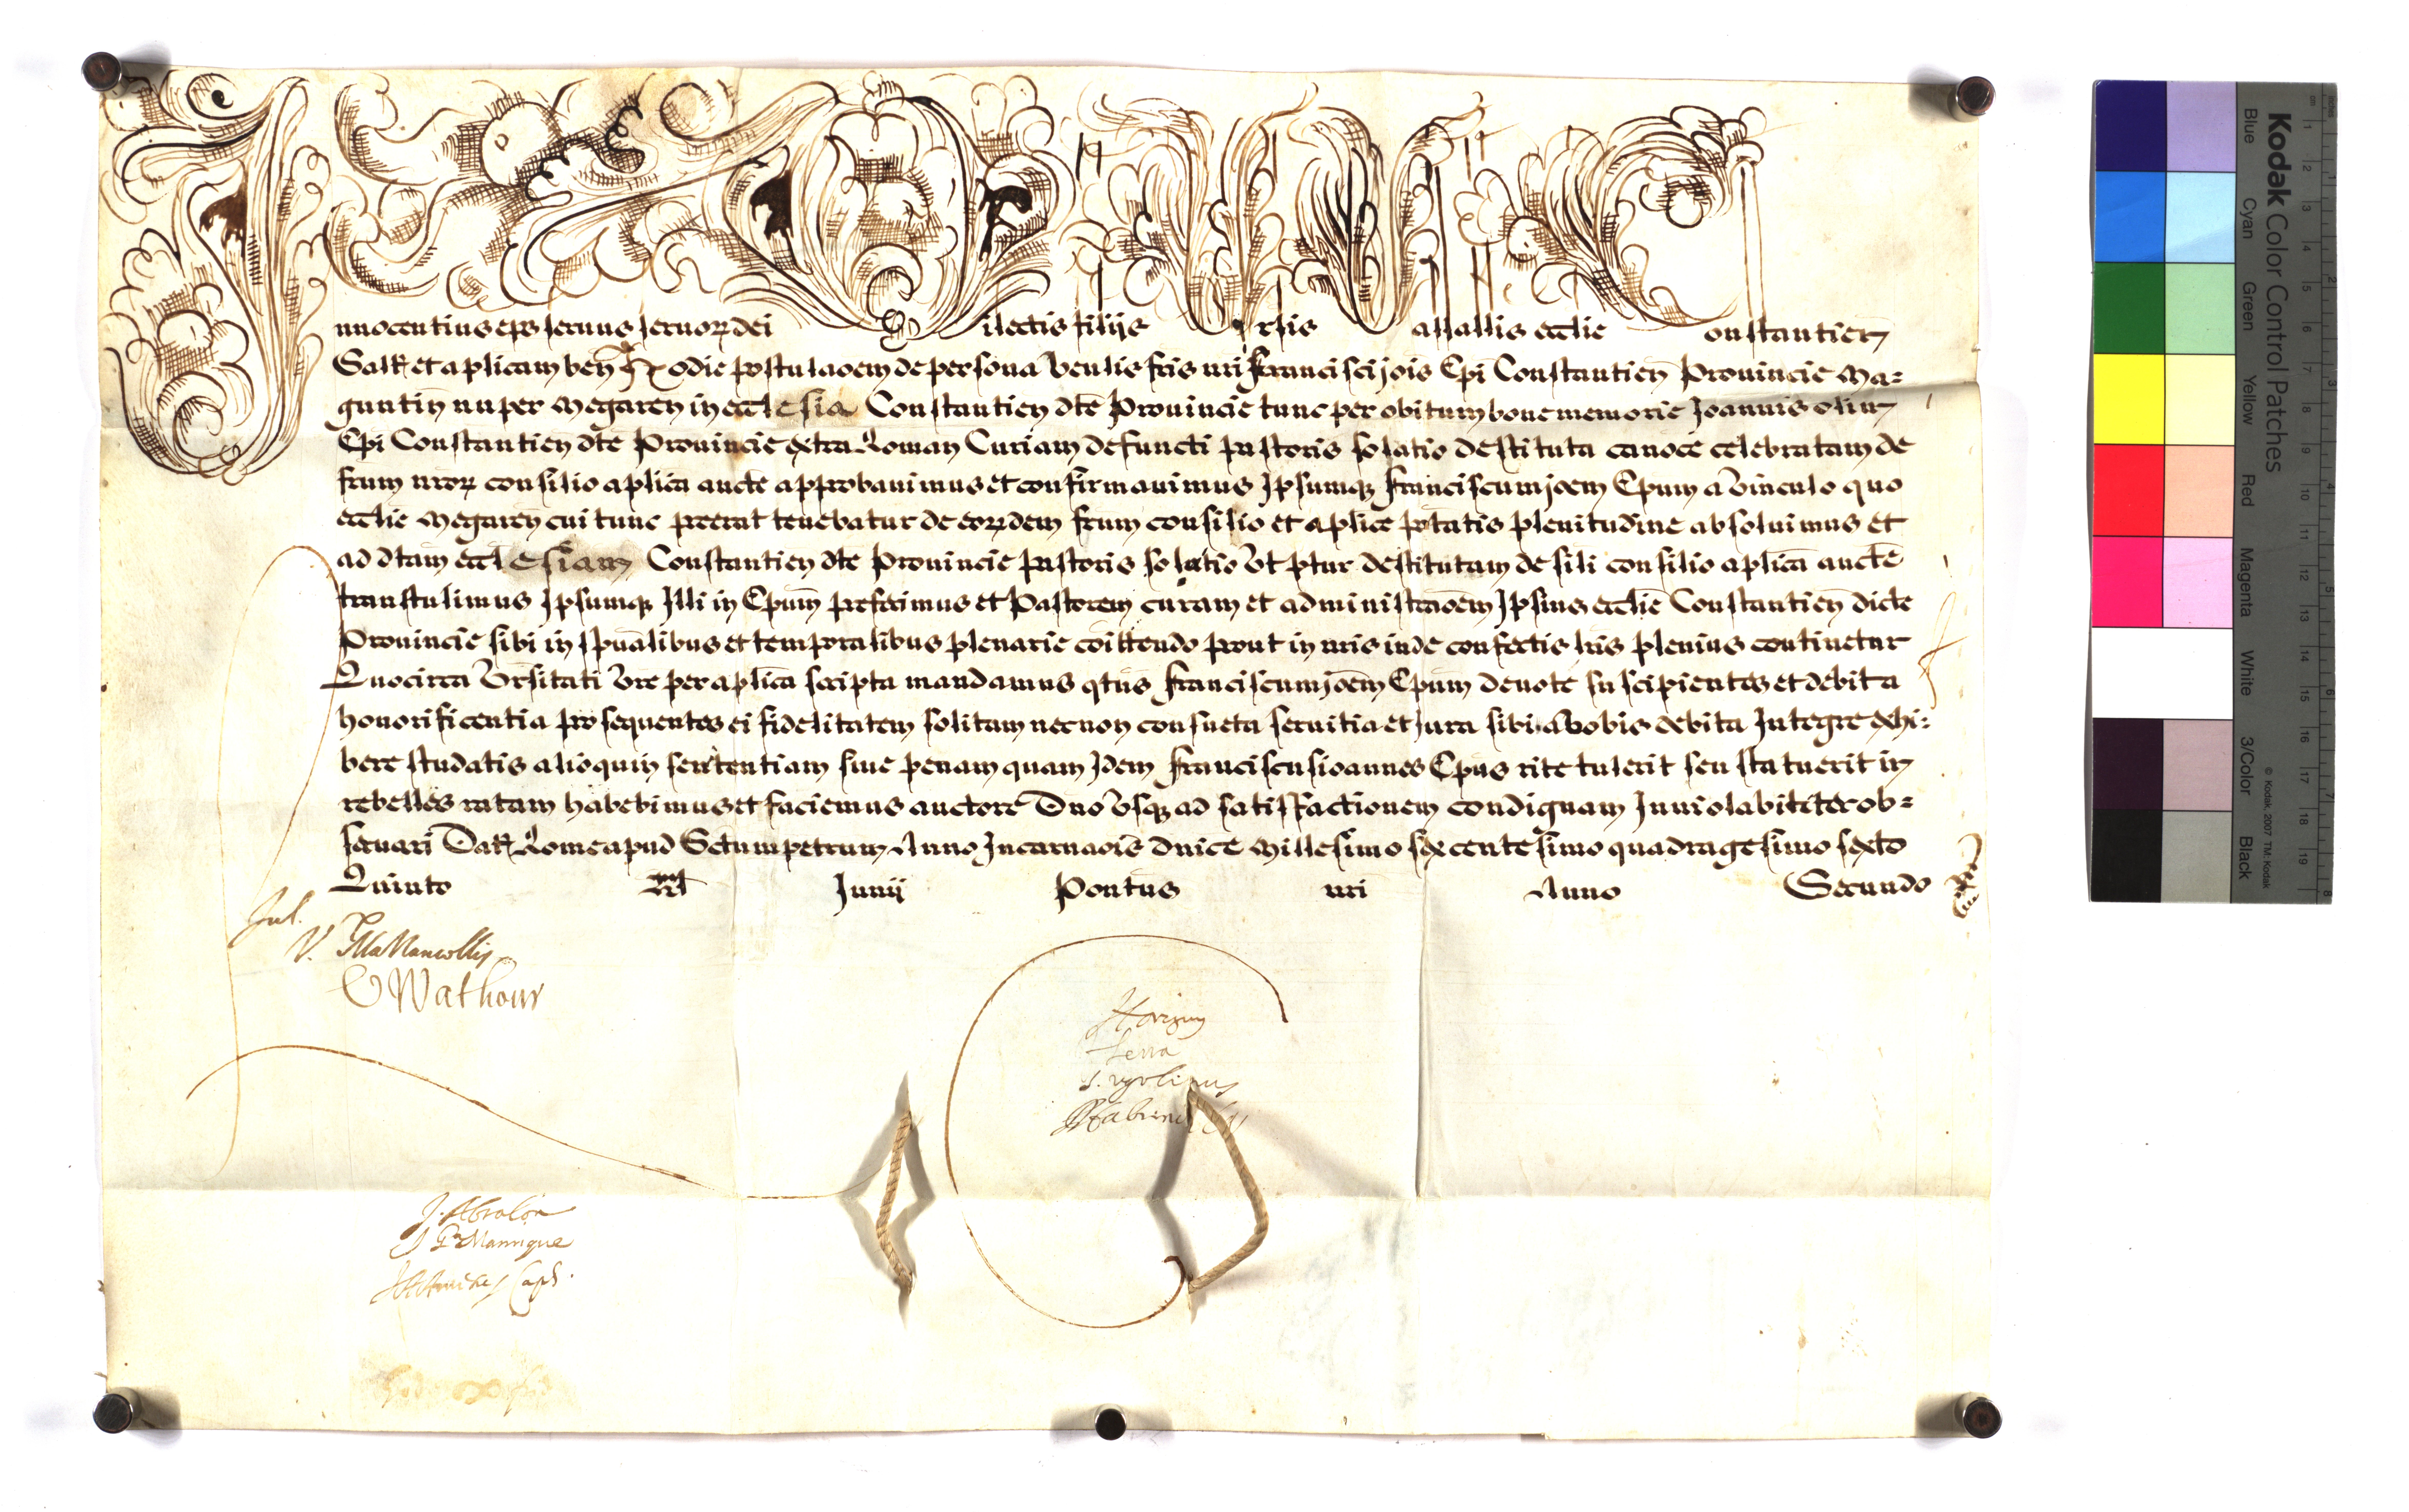 nnocentius eps seruus seruoꝝ dei ilectis filijs rsis asallis ecclie onstantien
Saltem et aplicam ben Hodie postulaoem de persona venlis fris nri Francisci jois Epi Constantien Prouincie Ma=
guntin nuper Megaren in ecclesia Constantien dte Prouincie tunc per obitum bone memorie Joannis olim
Epi Constantien dte Prouincie extra Roman Curiam defuncti Pastoris solatio destituta canoce celebratam de
frum nroꝝ consilio aplica aucte approbauimus et confirmauimus Ipsumqꝫ franciscum joem Epum a vinculo quo
ecclie Megaren cui tunc preerat tenebatur de eoꝝdem frum consilio et aplice ptatis plenitudine absoluimus et
ad dtam ecclesiam Constantien dte Prouincie Pastoris solatio vt ptur destitutam de sili consilio aplica aucte
transtulimus Ipsumqꝫ Illi in Epum prefecimus et Pastorem curam et administraoem Ipsius ecclie Constantien dicte
Prouincie sibi in spualibus et temporalibus plenarie coittendo prout in nris inde confectis lris plenius continetur
Quocirca vrsitati vre per aplica scripta mandamus qtus franciscum joem Epum deuote suscipientes et debita
honorificentia prosequentes ei fidelitatem solitam necnon consueta seruitia et Jura sibi a vobis debita Integre exhi=
bere studatis alioquin sententiam siue penam quam Idem franciscus ioannes Epus rite tulerit seu statuerit in
rebelles ratam habebimus et faciemus auctore Dno vsqꝫ ad satisfactionem condignam Inuiolabiliter ob=
seruari Dat Rome apud Sctum petrum Anno Incarnaois dnice Millesimo sexcentesimo quadragesimo sexto
Quinto Junij Pontus nri Anno Secundo
Jul.
O Wathour
Lena
J. Abralon
Manrique
Kodak Color Control Patches
Blue Cyan Green Yellow Red Magenta White 3/Color Black
© Kodak, 2007 TM: Kodak
1 2 3 4 5 6 7 8 9 10 11 12 13 14 15 16 17 18 19
1 2 3 4 5 6 7 8